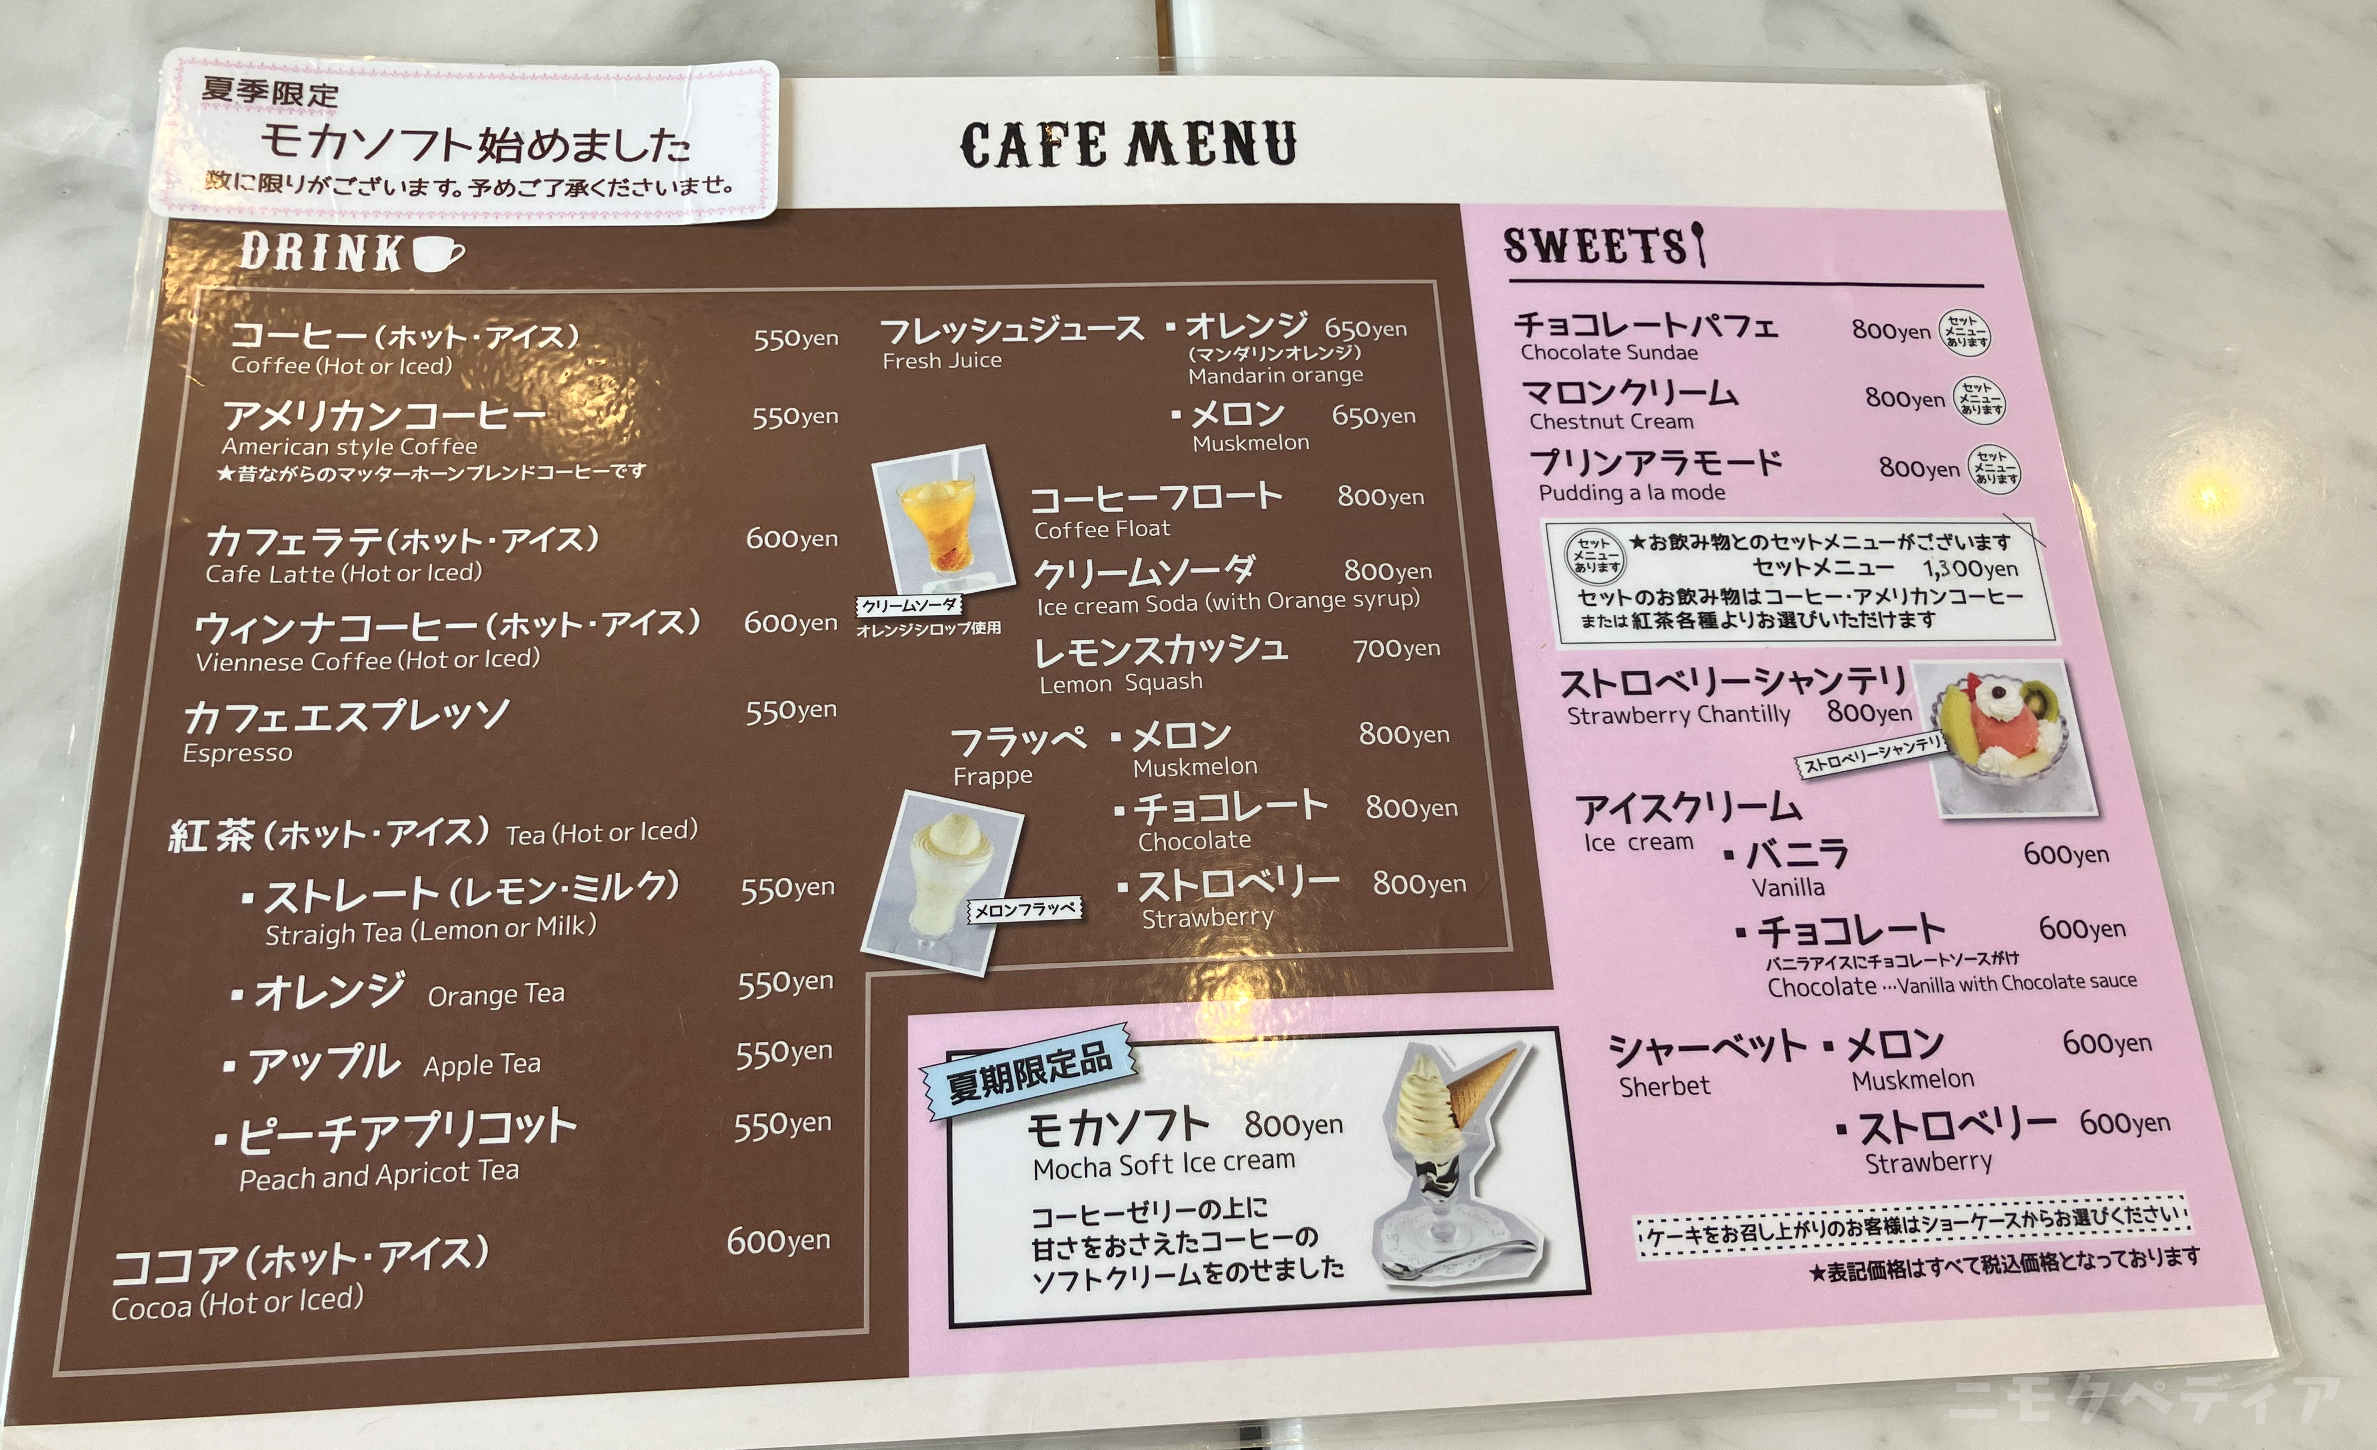 夏季限定
モカソフト始めました
数に限りがございます。予めご了承くださいませ。
CAFE MENU
DRINK
コーヒー(ホット・アイス) 550yen
Coffee (Hot or Iced)
アメリカンコーヒー 550yen
American style Coffee
★昔ながらのマッターホーンブレンドコーヒーです
カフェラテ(ホット・アイス) 600yen
Cafe Latte (Hot or Iced)
ウィンナコーヒー(ホット・アイス) 600yen
Viennese Coffee (Hot or Iced)
カフェエスプレッソ 550yen
Espresso
紅茶(ホット・アイス) Tea (Hot or Iced)
▪ストレート(レモン・ミルク) 550yen
Straigh Tea (Lemon or Milk)
▪オレンジ Orange Tea 550yen
▪アップル Apple Tea 550yen
▪ピーチアプリコット 550yen
Peach and Apricot Tea
ココア(ホット・アイス) 600yen
Cocoa (Hot or Iced)
フレッシュジュース ▪オレンジ 650yen
Fresh Juice (マンダリンオレンジ)
Mandarin orange
▪メロン 650yen
Muskmelon
コーヒーフロート 800yen
Coffee Float
クリームソーダ 800yen
Ice cream Soda (with Orange syrup)
クリームソーダ
オレンジシロップ使用
レモンスカッシュ 700yen
Lemon Squash
フラッペ ▪メロン 800yen
Frappe Muskmelon
▪チョコレート 800yen
Chocolate
▪ストロベリー 800yen
Strawberry
メロンフラッペ
夏期限定品
モカソフト 800yen
Mocha Soft Ice cream
コーヒーゼリーの上に
甘さをおさえたコーヒーの
ソフトクリームをのせました
SWEETS
チョコレートパフェ 800yen セットメニューあります
Chocolate Sundae
マロンクリーム 800yen セットメニューあります
Chestnut Cream
プリンアラモード 800yen セットメニューあります
Pudding a la mode
セットメニューあります ★お飲み物とのセットメニューがございます
セットメニュー 1,300yen
セットのお飲み物はコーヒー・アメリカンコーヒー
または紅茶各種よりお選びいただけます
ストロベリーシャンテリ
Strawberry Chantilly 800yen
ストロベリーシャンテリ
アイスクリーム
Ice cream
▪バニラ 600yen
Vanilla
▪チョコレート 600yen
バニラアイスにチョコレートソースがけ
Chocolate …Vanilla with Chocolate sauce
シャーベット ▪メロン 600yen
Sherbet Muskmelon
▪ストロベリー 600yen
Strawberry
ケーキをお召し上がりのお客様はショーケースからお選びください
★表記価格はすべて税込価格となっております
ニモクペディア